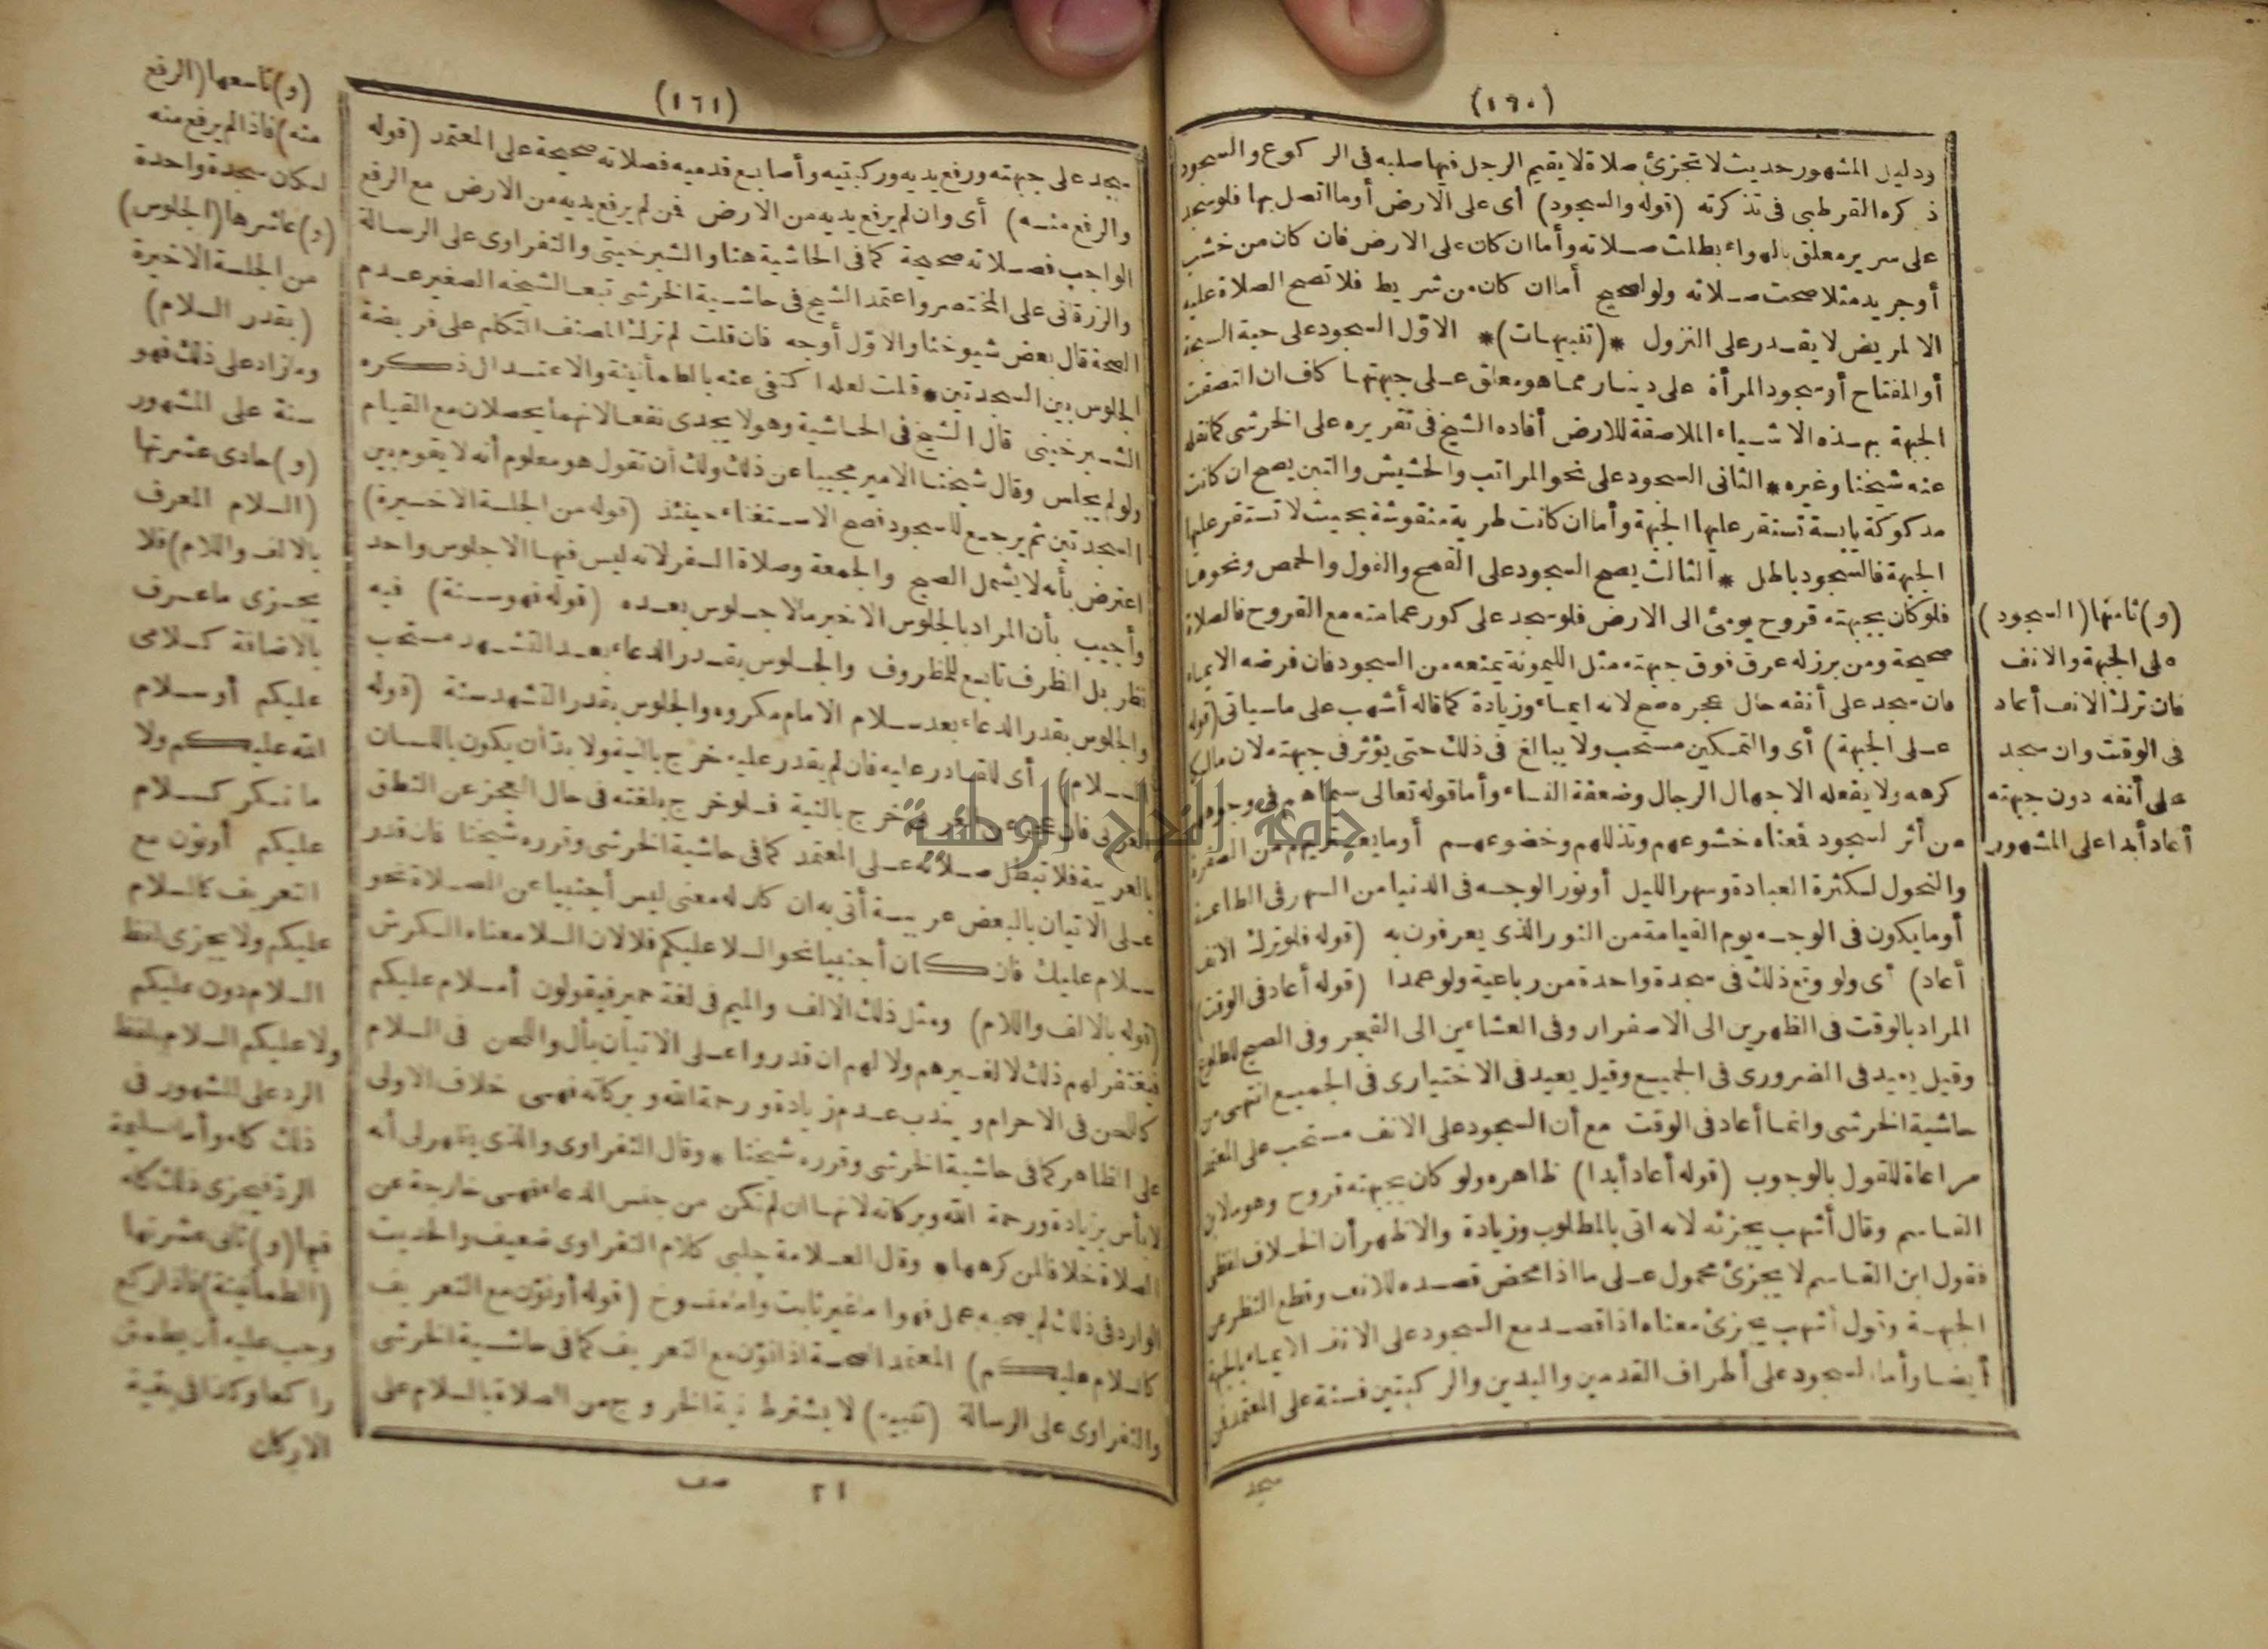 (١٦٠)
ودليل المشهور حديث لا تجزئ صلاة لا يقيم الرجل فيها صلبه فى الركوع والسجود
ذكره القرطبى فى تذكرته (قوله والسجود) أى على الارض أوما اتصل بها فلو سجد
على سرير معلق بالهواء بطلت صلاته وأما ان كان على الارض فان كان من خشب
أوجريد مثلا صحت صلاته ولو لصحيح أما ان كان من شريط فلا تصح الصلاة عليه
الا لمريض لا يقدر على النزول *(تنبيهات)* الاوّل السجود على حبة السبحة
أو المفتاح أو سجود المرأة على دينار مما هو معلق على جبهتها كاف ان التصقت
الجبهة بهذه الاشياء الملاصقة للارض أفاده الشيخ فى تقريره على الخرشى كما نقله
عنه شيخنا وغيره * الثانى السجود على نحو المراتب والحشيش والتبن يصح ان كانت
مدكوكة يابسة تستقر عليها الجبهة وأما ان كانت طرية منقوشة بحيث لا تستقر عليها
الجبهة فالسجود باطل * الثالث يصح السجود على القمح والفول والحمص ونحوها
فلو كان بجبهته قروح يومئ الى الارض فلو سجد على كور عمامته مع القروح فالصلاة
صحيحة ومن برز له عرق فوق جبهته مثل الليمونة يمنعه من السجود فان فرضه الايماء
فان سجد على أنفه حال عجزه صح لانه ايماء وزيادة كما قاله أشهب على ما سياتى (قوله
على الجبهة) أى والتمكين مستحب ولا يبالغ فى ذلك حتى يؤثر فى جبهته لان مالكا
كرهه ولا يفعله الا جهال الرجال وضعفة النساء وأما قوله تعالى سيماهم فى وجوههم
من أثر السجود فمعناه خشوعهم وتذللهم وخضوعهم أوما يعتريهم من الصفرة
والنحول لكثرة العبادة وسهر الليل أو نور الوجه فى الدنيا من السهر فى الطاعة
أوما يكون فى الوجه يوم القيامة من النور الذى يعرفون به (قوله فلو ترك الانف
أعاد) أى ولو وقع ذلك فى سجدة واحدة من رباعية ولو عمدا (قوله أعاد فى الوقت)
المراد بالوقت فى الظهرين الى الاصفرار وفى العشاءين الى الفجر وفى الصبح للطلوع
وقيل يعيد فى الضرورى فى الجميع وقيل يعيد فى الاختيارى فى الجميع انتهى من
حاشية الخرشى وانما أعاد فى الوقت مع أن السجود على الانف مستحب على المعتمد
مراعاة للقول بالوجوب (قوله أعاد أبدا) ظاهره ولو كان بجبهته قروح وهو لابن
القاسم وقال أشهب يجزئه لانه اتى بالمطلوب وزيادة والاظهر أن الخلاف لفظى
فقول ابن القاسم لا يجزئ محمول على ما اذا محض قصده للانف وقطع النظر عن
الجبهة وقول أشهب يجزئ معناه اذا قصد مع السجود على الانف الايماء بالجبهة
أيضا وأما السجود على أطراف القدمين واليدين والركبتين فسنة على المعتمد فن
سجد
(و) ثامنها (السجود)
على الجبهة والانف
فان ترك الانف أعاد
فى الوقت وان سجد
على أنفه دون جبهته
أعاد أبدا على المشهور
(١٦١)
سجد على جبهته ورفع يديه وركبتيه وأصابع قدميه فصلاته صحيحة على المعتمد (قوله
والرفع منه) أى وان لم يرفع يديه من الارض فمن لم يرفع يديه من الارض مع الرفع
الواجب فصلاته صحيحة كما فى الحاشية هنا والشبرخيتى والنفراوى على الرسالة
والزرقانى على المختصر واعتمد الشيخ فى حاشية الخرشى تبعا لشيخه الصغير عدم
الصحة قال بعض شيوخنا والاوّل أوجه فان قلت لم ترك المصنف التكلم على فريضة
الجلوس بين السجدتين * قلت لعله اكتفى عنه بالطمأنينة والاعتدال ذكره
الشبرخيتى قال الشيخ فى الحاشية وهو لا يجدى نفعا لانهما يحصلان مع القيام
ولو لم يجلس وقال شيخنا الامير مجيبا عن ذلك ولك أن تقول هو معلوم أنه لا يقوم بين
السجدتين ثم يرجع للسجود فصح الاستغناء حينئذ (قوله من الجلسة الاخيرة)
اعترض بأنه لا يشمل الصبح والجمعة وصلاة السفر لانه ليس فيها الا جلوس واحد
وأجيب بأن المراد بالجلوس الاخير مالا جلوس بعده (قوله فهو سنة) فيه
نظر بل الظرف تابع للمظروف والجلوس بقدر الدعاء بعد التشهد مستحب
والجلوس بقدر الدعاء بعد سلام الامام مكروه والجلوس بقدر التشهد سنة (قوله
السلام) أى للقادر عليه فان لم يقدر عليه خرج بالنية ولا بدّ أن يكون باللسان
العربى فان عجز عن العربية خرج بالنية فلو خرج بلغته فى حال العجز عن النطق
بالعربية فلا تبطل صلاته على المعتمد كما فى حاشية الخرشى وقرره شيخنا فان قدر
على الاتيان بالبعض عربية أتى به ان كان له معنى ليس أجنبيا عن الصلاة نحو
سلام عليك فان كان أجنبيا نحو السلا عليكم فلا لان السلا معناه الكرش
(قوله بالالف واللام) ومثل ذلك الالف والميم فى لغة حمير فيقولون أمسلام عليكم
فيغتفر لهم ذلك لا لغيرهم ولا لهم ان قدروا على الاتيان بأل واللحن فى السلام
كاللحن فى الاحرام ويندب عدم زيادة ورحمة الله وبركاته فهى خلاف الاولى
على الظاهر كما فى حاشية الخرشى وقرره شيخنا * وقال النفراوى والذى يظهر لى أنه
لا بأس بزيادة ورحمة الله وبركاته لانها ان لم تكن من جنس الدعاء فهى خارجة عن
الصلاة خلافا لمن كرهها * وقال العلامة جلبى كلام النفراوى ضعيف والحديث
الوارد فى ذلك لم يصحبه عمل فهو اما غير ثابت واما منسوخ (قوله أو نوّن مع التعريف
كالسلام عليكم) المعتمد الصحة اذا نوّن مع التعريف كما فى حاشية الخرشى
والنفراوى على الرسالة (تنبيه) لا يشترط نية الخروج من الصلاة بالسلام على
٢١ صف
(و) تاسعها (الرفع
منه) فاذا لم يرفع منه
لكان سجدة واحدة
(و) عاشرها (الجلوس)
من الجلسة الاخيرة
(بقدر السلام)
وما زاد على ذلك فهو
سنة على المشهور
(و) حادى عشرتها
(السلام المعرف
بالالف واللام) فلا
يجزى ما عرف
بالاضافة كسلامى
عليكم أو سلام
الله عليكم ولا
ما نكر كسلام
عليكم أو نوّن مع
التعريف كالسلام
عليكم ولا يجزى لفظ
السلام دون عليكم
ولا عليكم السلام بلفظ
الرد على المشهور فى
ذلك كله وأما تسليمة
الرد فيجزى ذلك كله
فيها (و) ثانى عشرتها
(الطمأنينة) فاذا ركع
وجب عليه أن يطمئن
راكعا وكذا فى بقية
الاركان
جامعة النجاح الوطنية